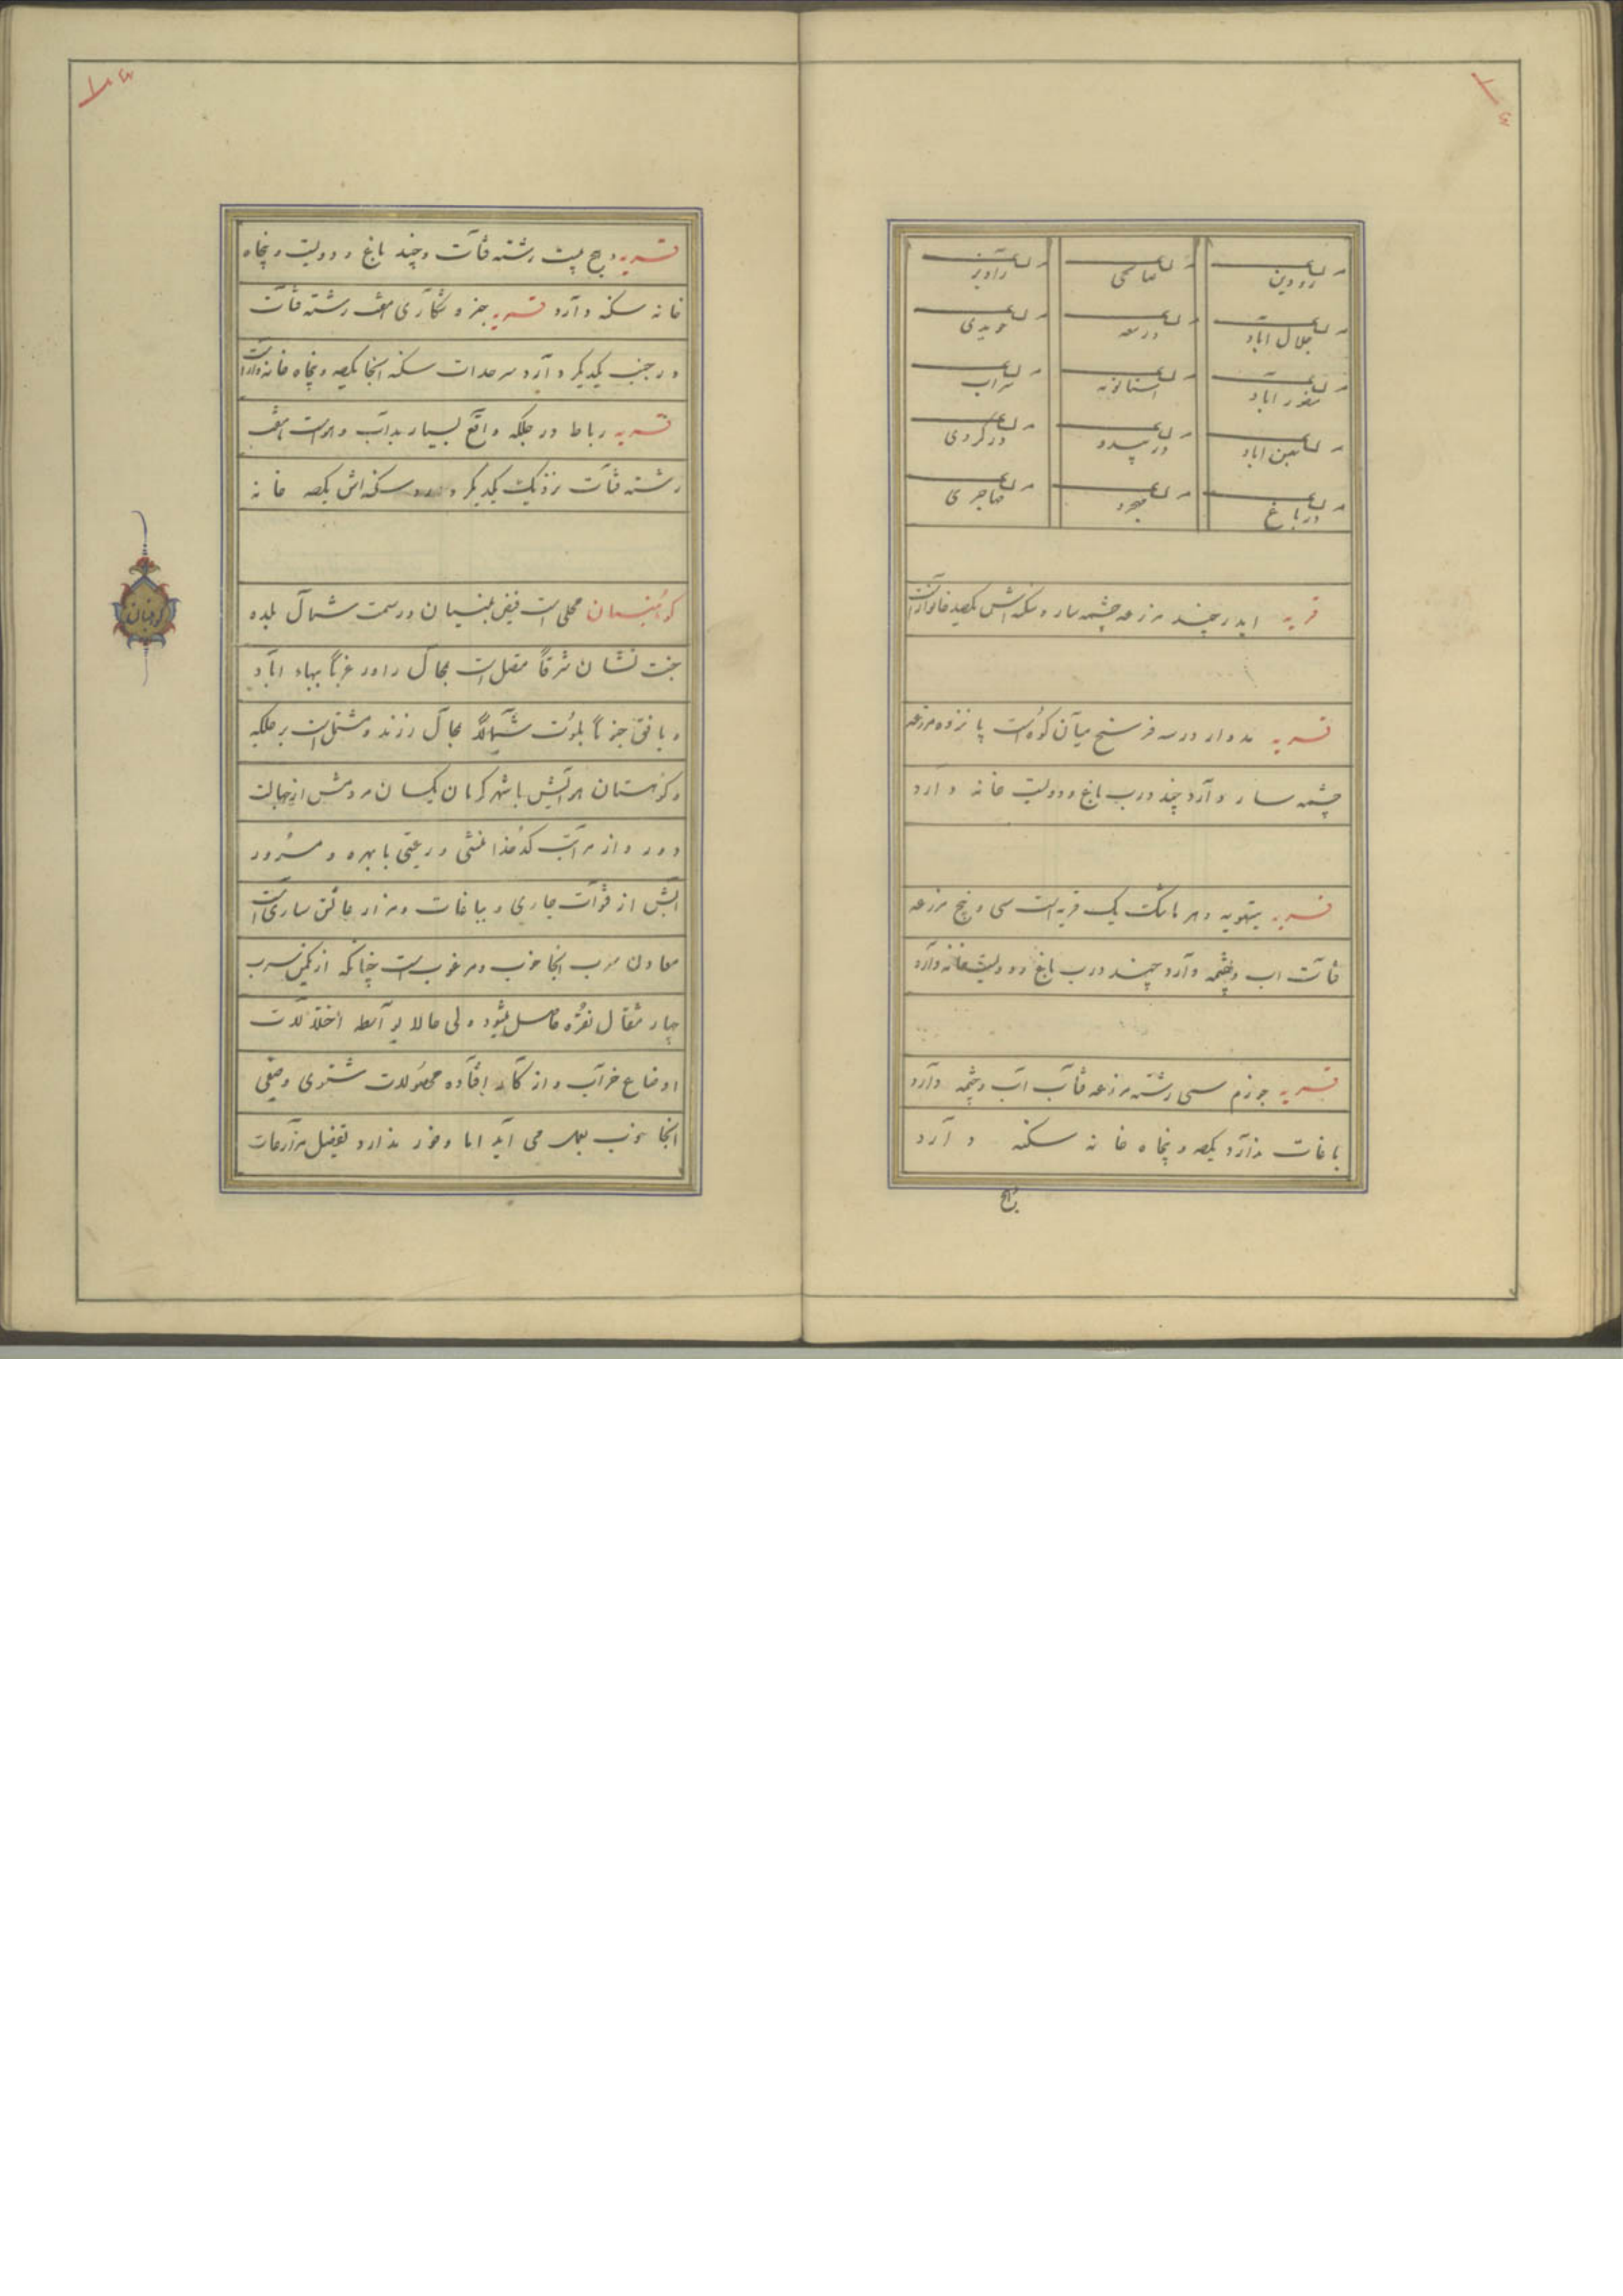 رودین صالحی راویز
جلال آباد درسعه حویدی
منصور آباد استانویه سراب
معین اباد در سیدو در گردی
در باغ مهرد مهاجری
قریه ایدر چند مزرعه چشمه سار و سکنه اش یکصد خانوار است
قریه مدوار در سه فرسخ میان کوه است پانزده مزرعه
چشمه سار دارد چند درب باغ و دویست خانه دارد
قریه یک قریه است سی و پنج مزرعه
قنات اب و چشمه دارد چند درب باغ دویست خانه دارد
قریه جوزم سی رشته مزرعه قنات آب و چشمه دارد
باغات ندارد یکصد و پنجاه خانه سکنه دارد
قریه بیست رشته قنات و چند باغ و دویست و پنجاه
خانه سکنه دارد قریه هفت رشته قنات
در جنب یکدیگر دارد سرحد است سکنه انجا یکصد و پنجاه خانه وار است
قریه رباط در جلگه واقع بسیار بد آب و هواست هفت
رشته قنات نزدیک یکدیگر دارد سکنه اش یکصد خانه
کوهبنان
کوهبنان محلی است فیض بنیان در سمت شمال بلده
جنت نشان شرقاً متصل است بمحال راور غرباً ببهاء اباد
و بافق جنوباً شمالاً بمحال زرند و مشتمل است بر جلگه
و کوهستان هوایش با شهر کرمان یکسان مردمش از جهالت
دور و از مراتب کدخدا منشی و رعیتی با بهره و مسرور
آبش از قنوات جاری و بباغات و مزارعاتش ساری است
معادن سرب انجا خوب و مرغوب است چنانکه از یکمن سرب
چهار مثقال نقره حاصل میشود ولی حالا بواسطه اختلالات
اوضاع خراب و از کار افتاده محصولات شتوی و صیفی
انجا خوب بعمل می آید اما وفور ندارد تفصیل مزارعات